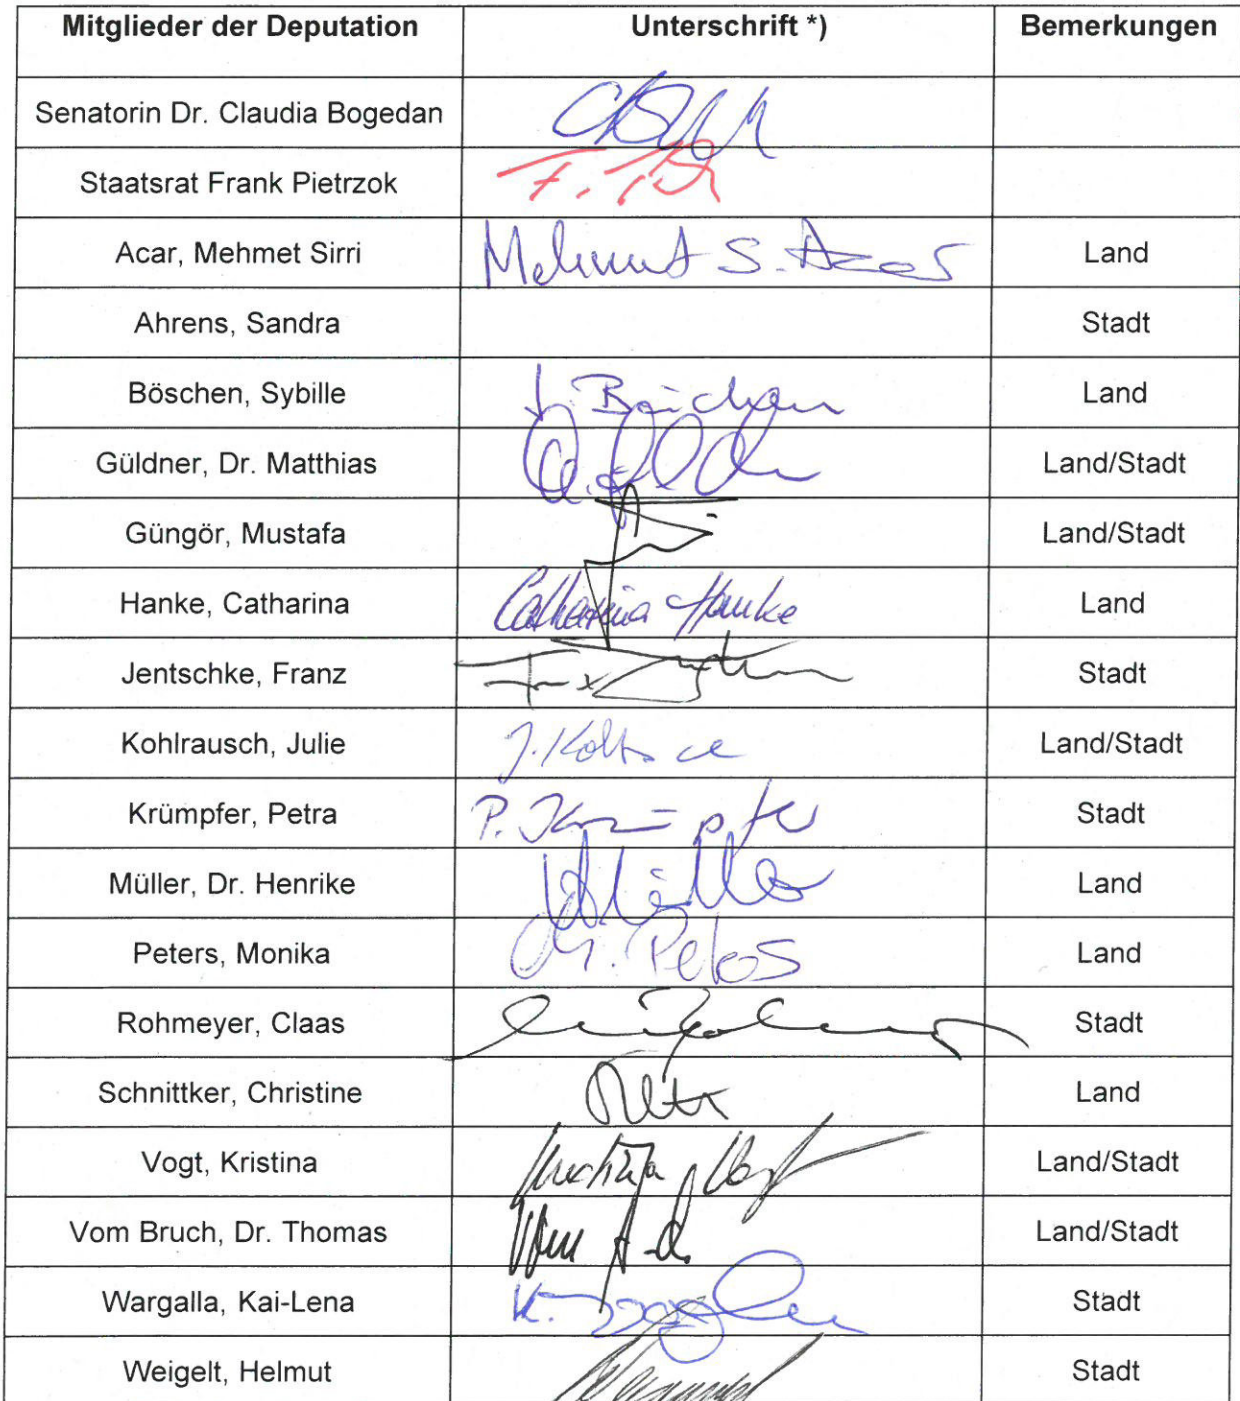 Mitglieder der Deputation Unterschrift *) Bemerkungen
Senatorin Dr. Claudia Bogedan
Staatsrat Frank Pietrzok F.
Acar, Mehmet Sirri Mehmet S. Acar Land
Ahrens, Sandra Stadt
Böschen, Sybille Land
Güldner, Dr. Matthias Land/Stadt
Güngör, Mustafa Land/Stadt
Hanke, Catharina Catharina Hanke Land
Jentschke, Franz Stadt
Kohlrausch, Julie Land/Stadt
Krümpfer, Petra P. Krümpfer Stadt
Müller, Dr. Henrike Land
Peters, Monika M. Peters Land
Rohmeyer, Claas Stadt
Schnittker, Christine Land
Vogt, Kristina Kristina Vogt Land/Stadt
Vom Bruch, Dr. Thomas Land/Stadt
Wargalla, Kai-Lena Stadt
Weigelt, Helmut Stadt